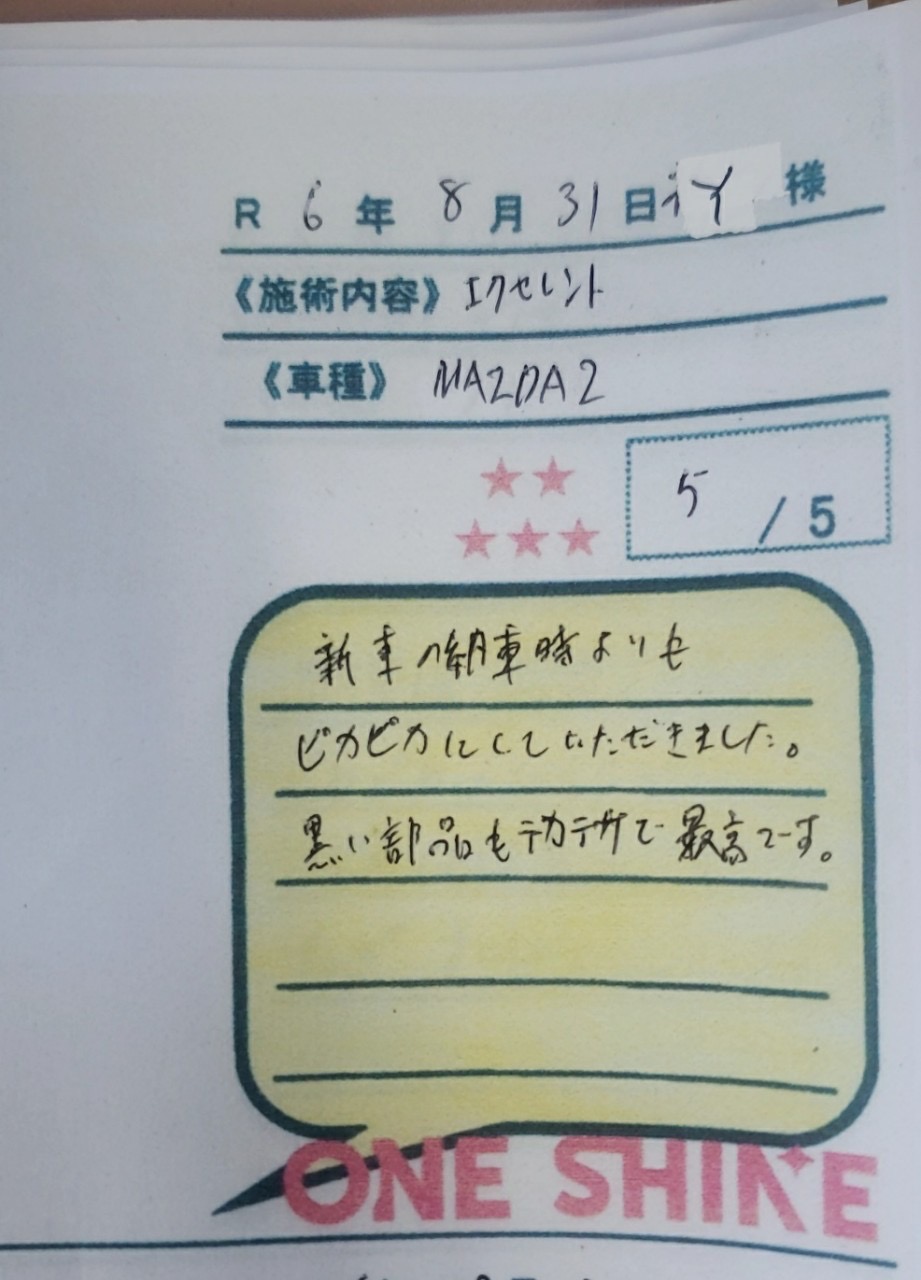 R 6 年 8 月 31 日 Y 様
《施術内容》 エクセレント
《車種》 MAZDA2
5 / 5
新車の納車時よりも
ピカピカにしていただきました。
黒い部品もテカテカで最高です。
ONE SHINE